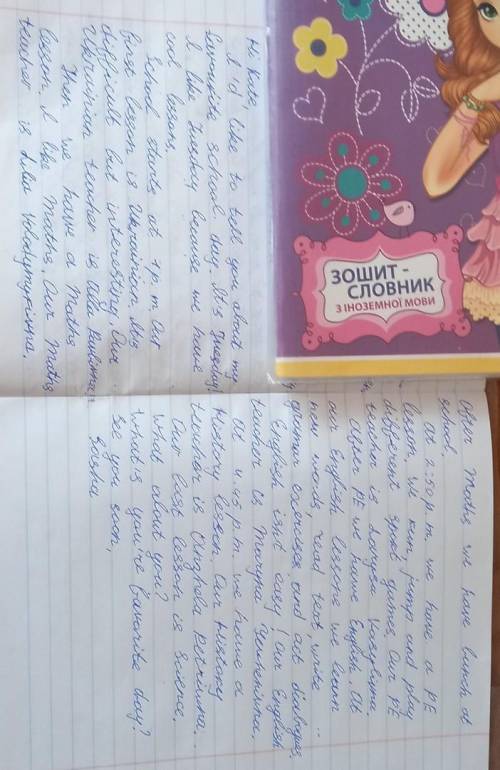 Hi Kate,
I'd like to tell you about my
favourite school day. It's Tuesday!
I like Tuesday because we have
cool lessons.
School starts at p.m. Our
first lesson is Ukrainian. It's
difficult but interesting. Our
Ukrainian teacher is Alla
Then we have a Maths
lesson. I like Maths. Our Maths
teacher is Volodymyrivna.
After Maths we have lunch at
school.
At 2.50 p.m. we have a PE
lesson. We run, jump and play
different sport games. Our PE
teacher is Larysa Vasylivna.
After PE we have English. At
our English lessons we learn
new words, read text, write
gramar exercises and act dialogues.
English isn't easy! Our English
teacher is Maryna
At 4.45 p.m. we have a
History lesson. Our History
teacher is Anghela Petrivna.
Our last lesson is Science.
What about you?
What's you're favorite day?
See you soon,
Sasha
ЗОШИТ -
СЛОВНИК
З ІНОЗЕМНОЇ МОВИ